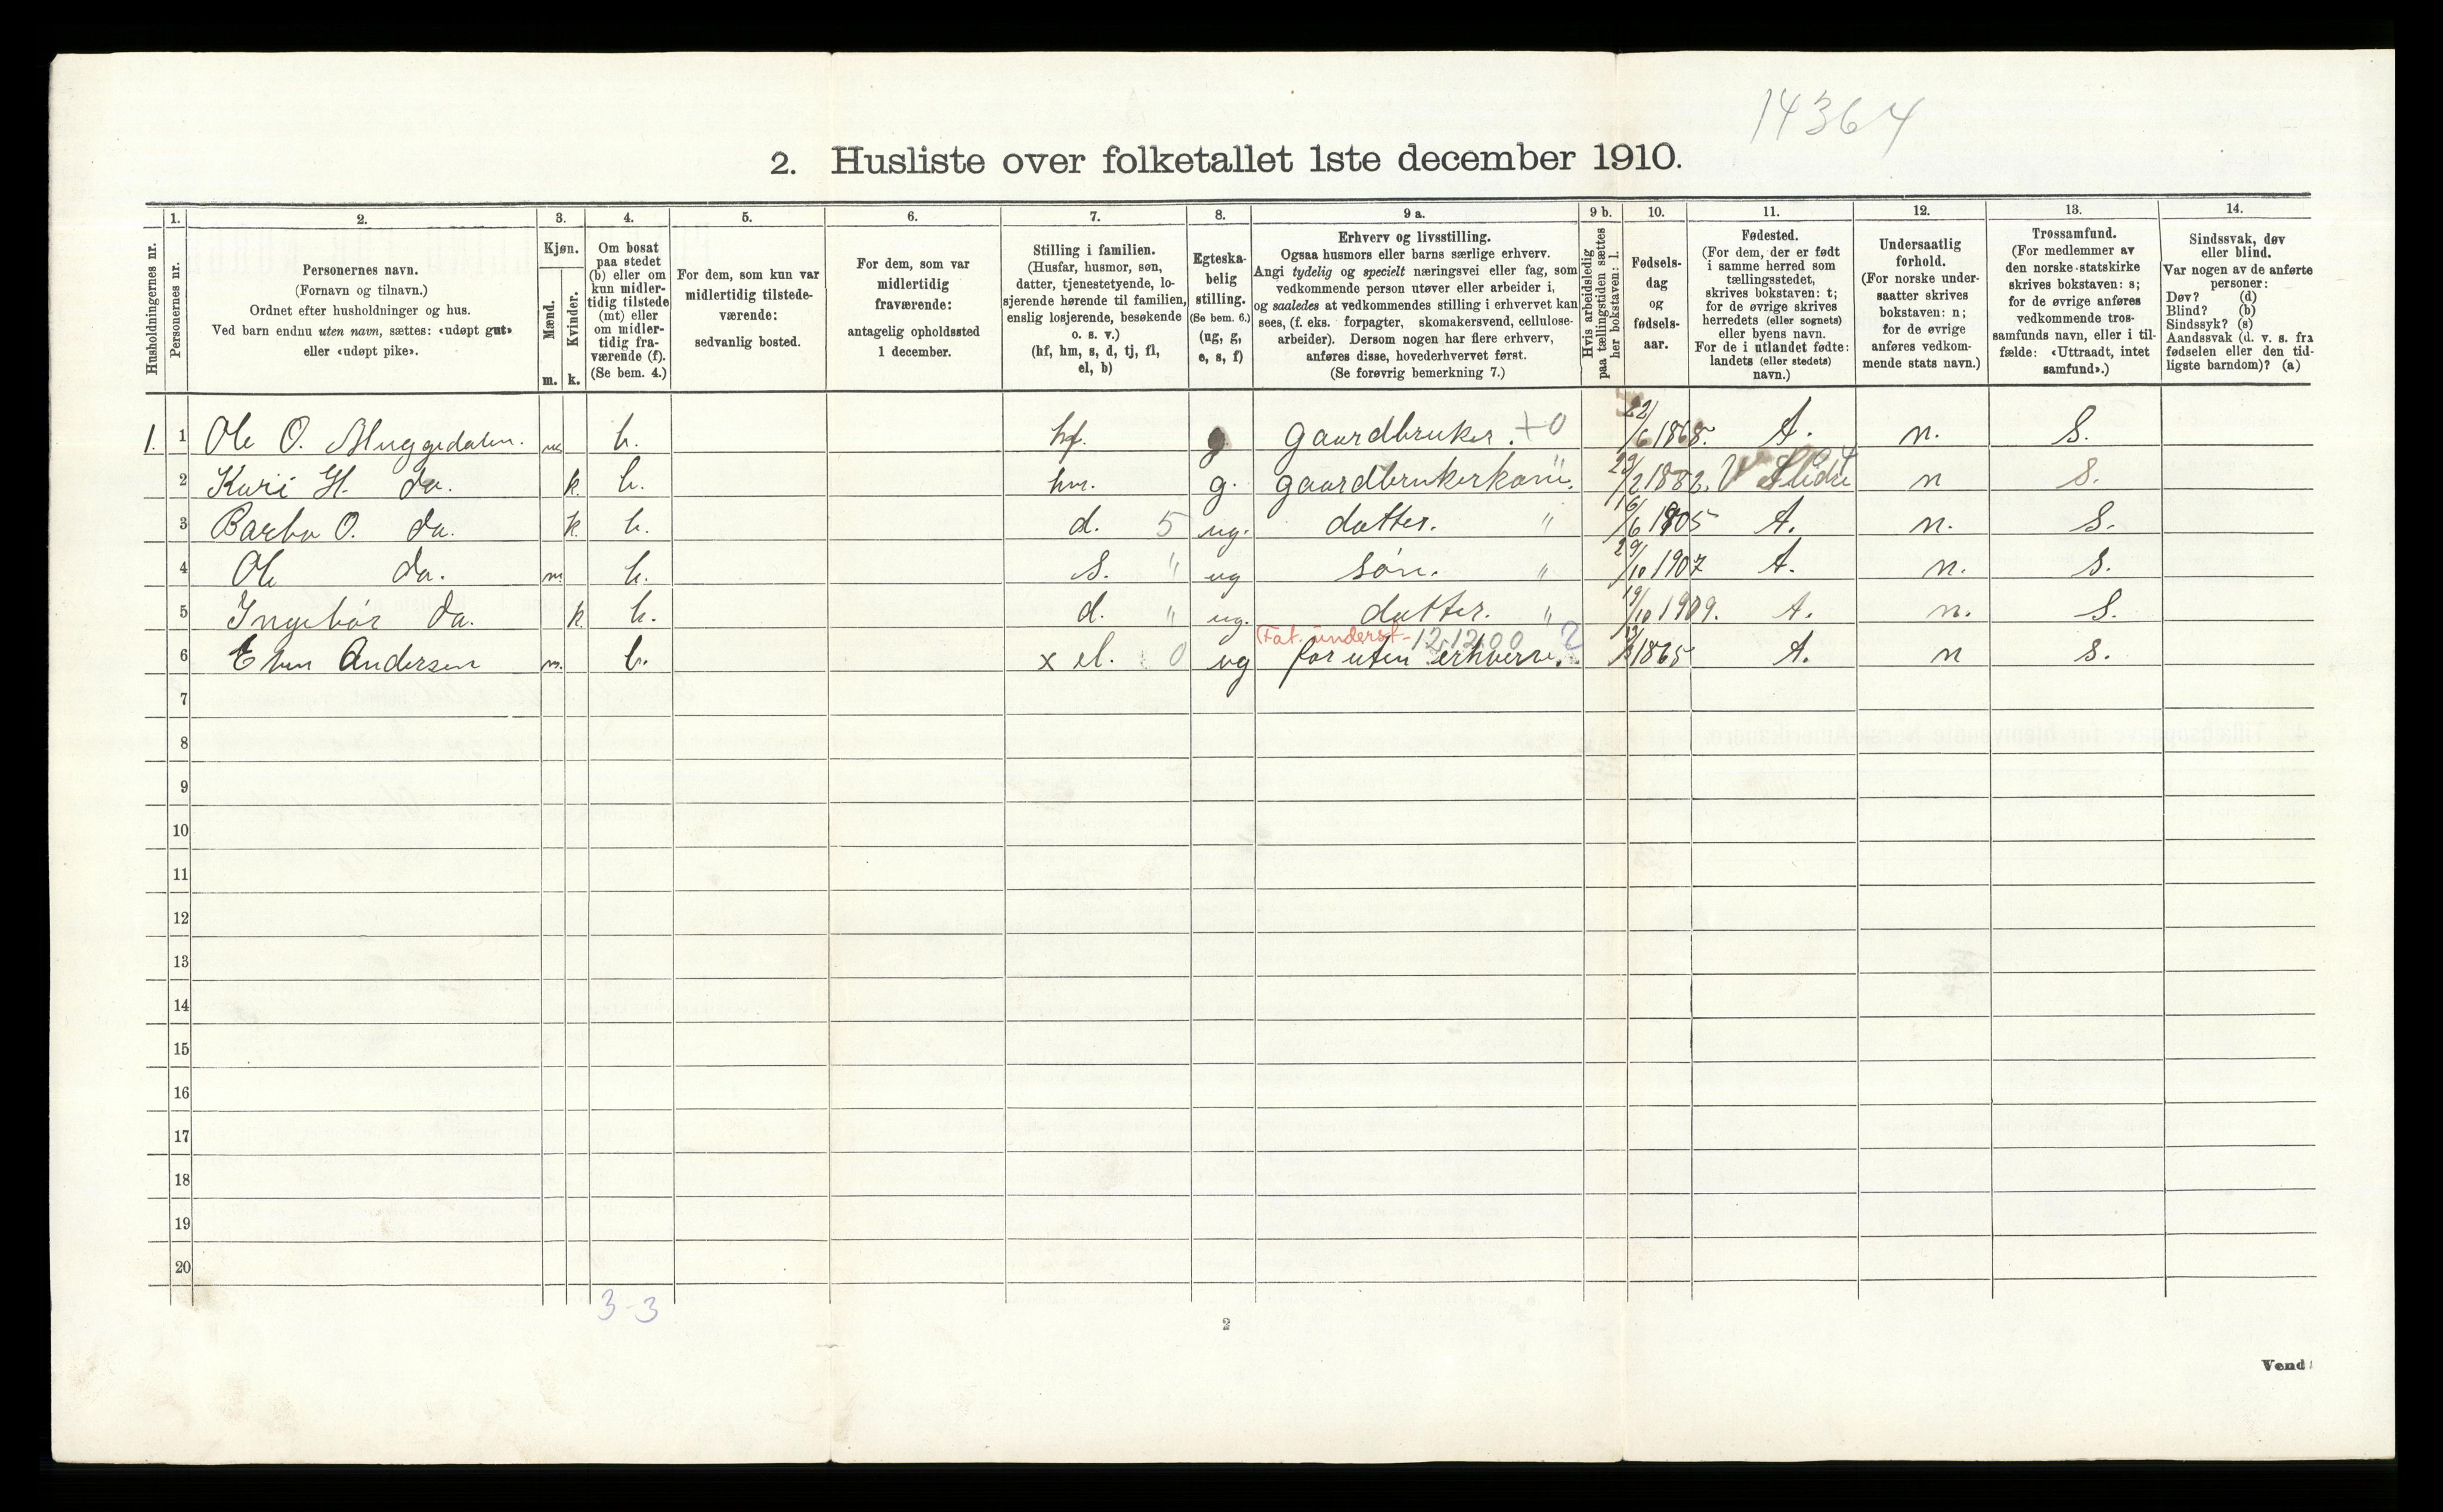 14364
2. Husliste over folketallet 1ste december 1910.
Husholdningernes nr.
1. 2. 3. 4. 5. 6. 7. 8. 9 a. 9 b. 10. 11. 12. 13. 14.
Personernes nr.
Personernes navn.
(Fornavn og tilnavn.)
Ordnet efter husholdninger og hus.
Ved barn endnu uten navn, sættes: «udøpt gut»
eller «udøpt pike».
Kjøn.
Mænd.
Kvinder.
m. k.
Om bosat
paa stedet
(b) eller om
kun midler-
tidig tilstede
(mt) eller
om midler-
tidig fra-
værende (f).
(Se bem. 4.)
For dem, som kun var
midlertidig tilstede-
værende:
sedvanlig bosted.
For dem, som var
midlertidig
fraværende:
antagelig opholdssted
1 december.
Stilling i familien.
(Husfar, husmor, søn,
datter, tjenestetyende, lo-
sjerende hørende til familien,
enslig losjerende, besøkende
o. s. v.)
(hf, hm, s, d, tj, fl,
el, b)
Egteska-
belig
stilling.
(Se bem. 6.)
(ug, g,
e, s, f)
Erhverv og livsstilling.
Ogsaa husmors eller barns særlige erhverv.
Angi tydelig og specielt næringsvei eller fag, som
vedkommende person utøver eller arbeider i,
og saaledes at vedkommendes stilling i erhvervet kan
sees, (f. eks. forpagter, skomakersvend, cellulose-
arbeider). Dersom nogen har flere erhverv,
anføres disse, hovederhvervet først.
(Se forøvrig bemerkning 7.)
Hvis arbeidsledig
paa tællingstiden sættes
her bokstaven: l.
Fødsels-
dag
og
fødsels-
aar.
Fødested.
(For dem, der er født
i samme herred som
tællingsstedet,
skrives bokstaven: t;
for de øvrige skrives
herredets (eller sognets)
eller byens navn.
For de i utlandet fødte:
landets (eller stedets)
navn.)
Undersaatlig
forhold.
(For norske under-
saatter skrives
bokstaven: n;
for de øvrige
anføres vedkom-
mende stats navn.)
Trossamfund.
(For medlemmer av
den norske statskirke
skrives bokstaven: s;
for de øvrige anføres
vedkommende tros-
samfunds navn, eller i til-
fælde: «Uttraadt, intet
samfund».)
Sindssvak, døv
eller blind.
Var nogen av de anførte
personer:
Døv? (d)
Blind? (b)
Sindssyk? (s)
Aandssvak (d. v. s. fra
fødselen eller den tid-
ligste barndom)? (a)
1. 1 Ole O. m b. hf. g gaardbruker. +0 22/6 1868. t. n. s.
2 Kari H. do. k. b. hm. g. gaardbrukerkone. " 29/2 1882. V Slidre n s.
3 Barbo O. do. k. b. d. 5 ug. datter. " 16/6 1905 t. n. s.
4 Ole do. m. b. s. " ug søn. " 29/10 1907 t. n. s.
5 Ingebør do. k b. d. " ug. datter. " 19/10 1909. t. n. s.
Fat. underst- 12.12.00 2
6 Andersen m. b. x el. 0 ug for uten erhverv. 1865 t. n s.
7
8
9
10
11
12
13
14
15
16
17
18
19
20
3-3
2
Vend!